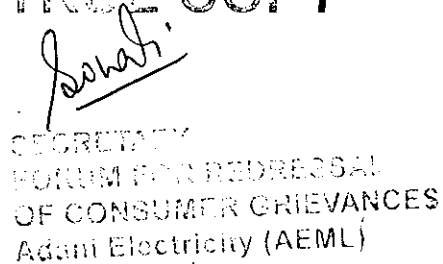 TRUE COPY
Sonali
SECRETARY
FORUM FOR REDRESSAL
OF CONSUMER GRIEVANCES
Adani Electricity (AEML)